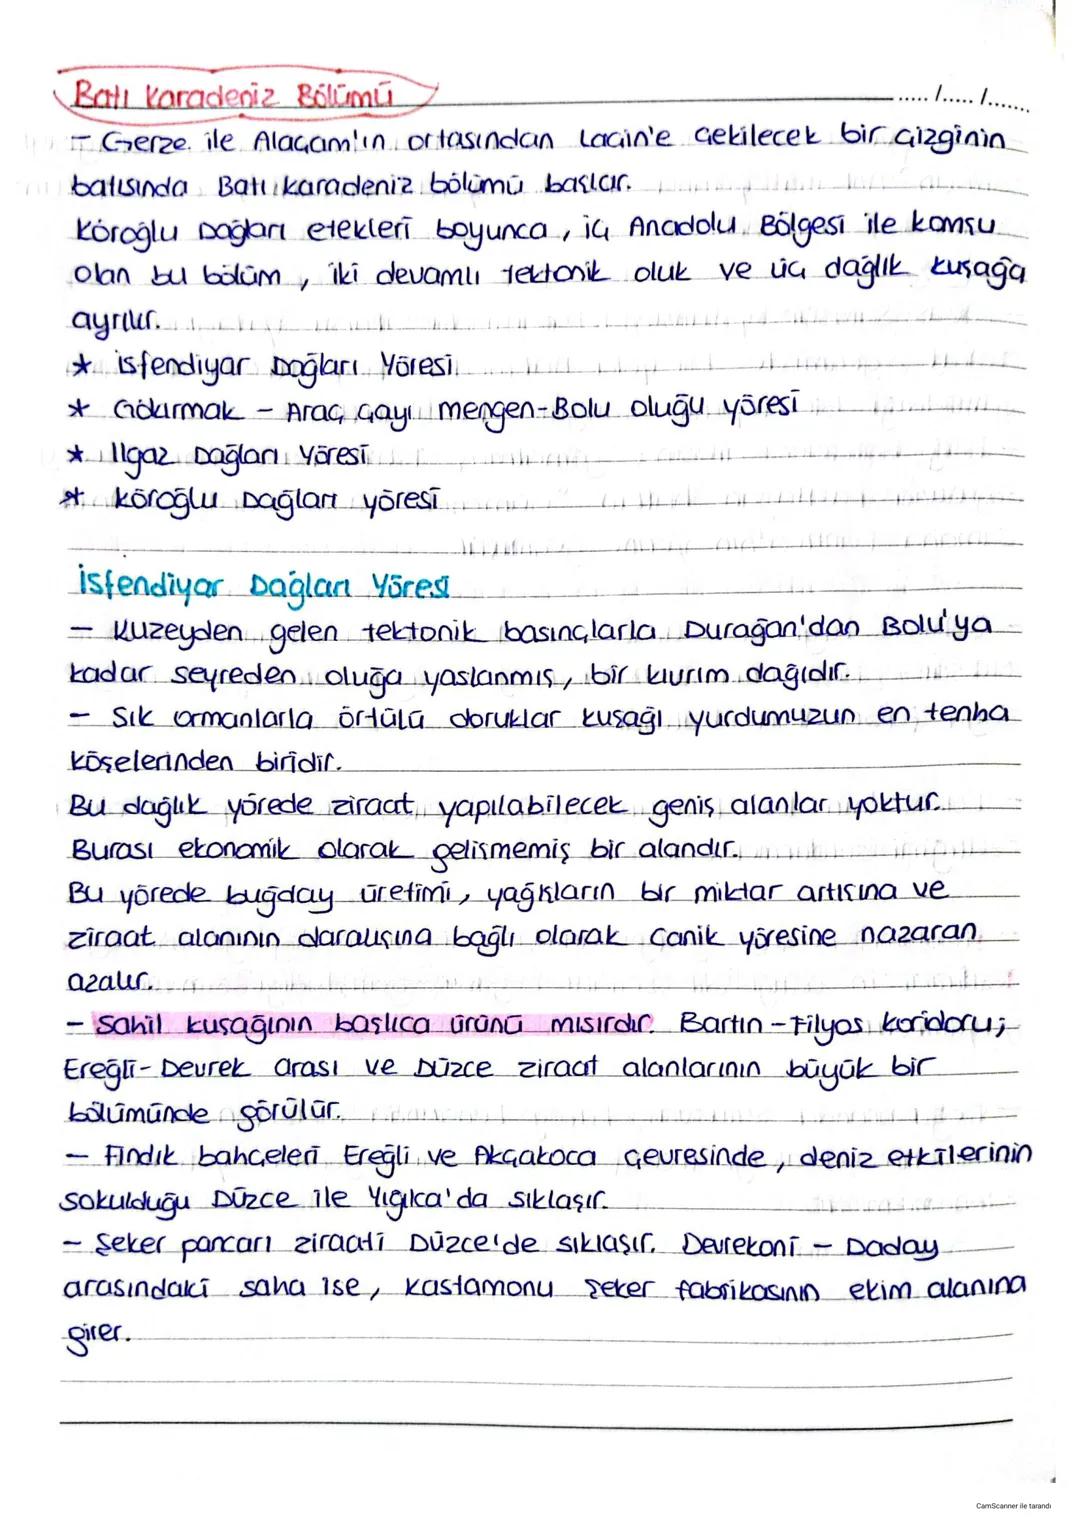 Batı Karadeniz Bölümü
...../...../.......
- Gerze ile Alaçam'ın ortasından Laçin'e çekilecek bir çizginin
batısında Batı karadeniz bölümü başlar.
Köroğlu Dağları etekleri boyunca, iç Anadolu Bölgesi ile komşu
olan bu bölüm, iki devamlı tektonik oluk ve üç dağlık kuşağa
ayrılır.
* isfendiyar Dağları Yöresi
* Gökırmak - Araç çayı mengen-Bolu oluğu yöresi
* Ilgaz Dağları Yöresi
* köroğlu Dağları yöresi
İsfendiyar Dağları Yöresi
- Kuzeyden gelen tektonik basınçlarla Durağan'dan Bolu'ya
kadar seyreden oluğa yaslanmış, bir kıvrım dağıdır.
- Sık ormanlarla örtülü doruklar kuşağı yurdumuzun en tenha
köşelerinden biridir.
Bu dağlık yörede ziraat yapılabilecek geniş alanlar yoktur.
Burası ekonomik olarak gelişmemiş bir alandır.
Bu yörede buğday üretimi, yağışların bir miktar artışına ve
ziraat alanının daralışına bağlı olarak Canik yöresine nazaran
azalır.
- Sahil kuşağının başlıca ürünü mısırdır Bartın - Filyos koridoru;
Ereğli - Devrek arası ve Düzce ziraat alanlarının büyük bir
bölümünde görülür.
- Fındık bahçeleri Ereğli ve Akçakoca çevresinde, deniz etkilerinin
sokulduğu Düzce ile Yığılca'da sıklaşır.
- Şeker pancarı ziraati Düzce'de sıklaşır. Devrekani - Daday
arasındaki saha ise, Kastamonu Şeker fabrikasının ekim alanına
girer.
CamScanner ile tarandı